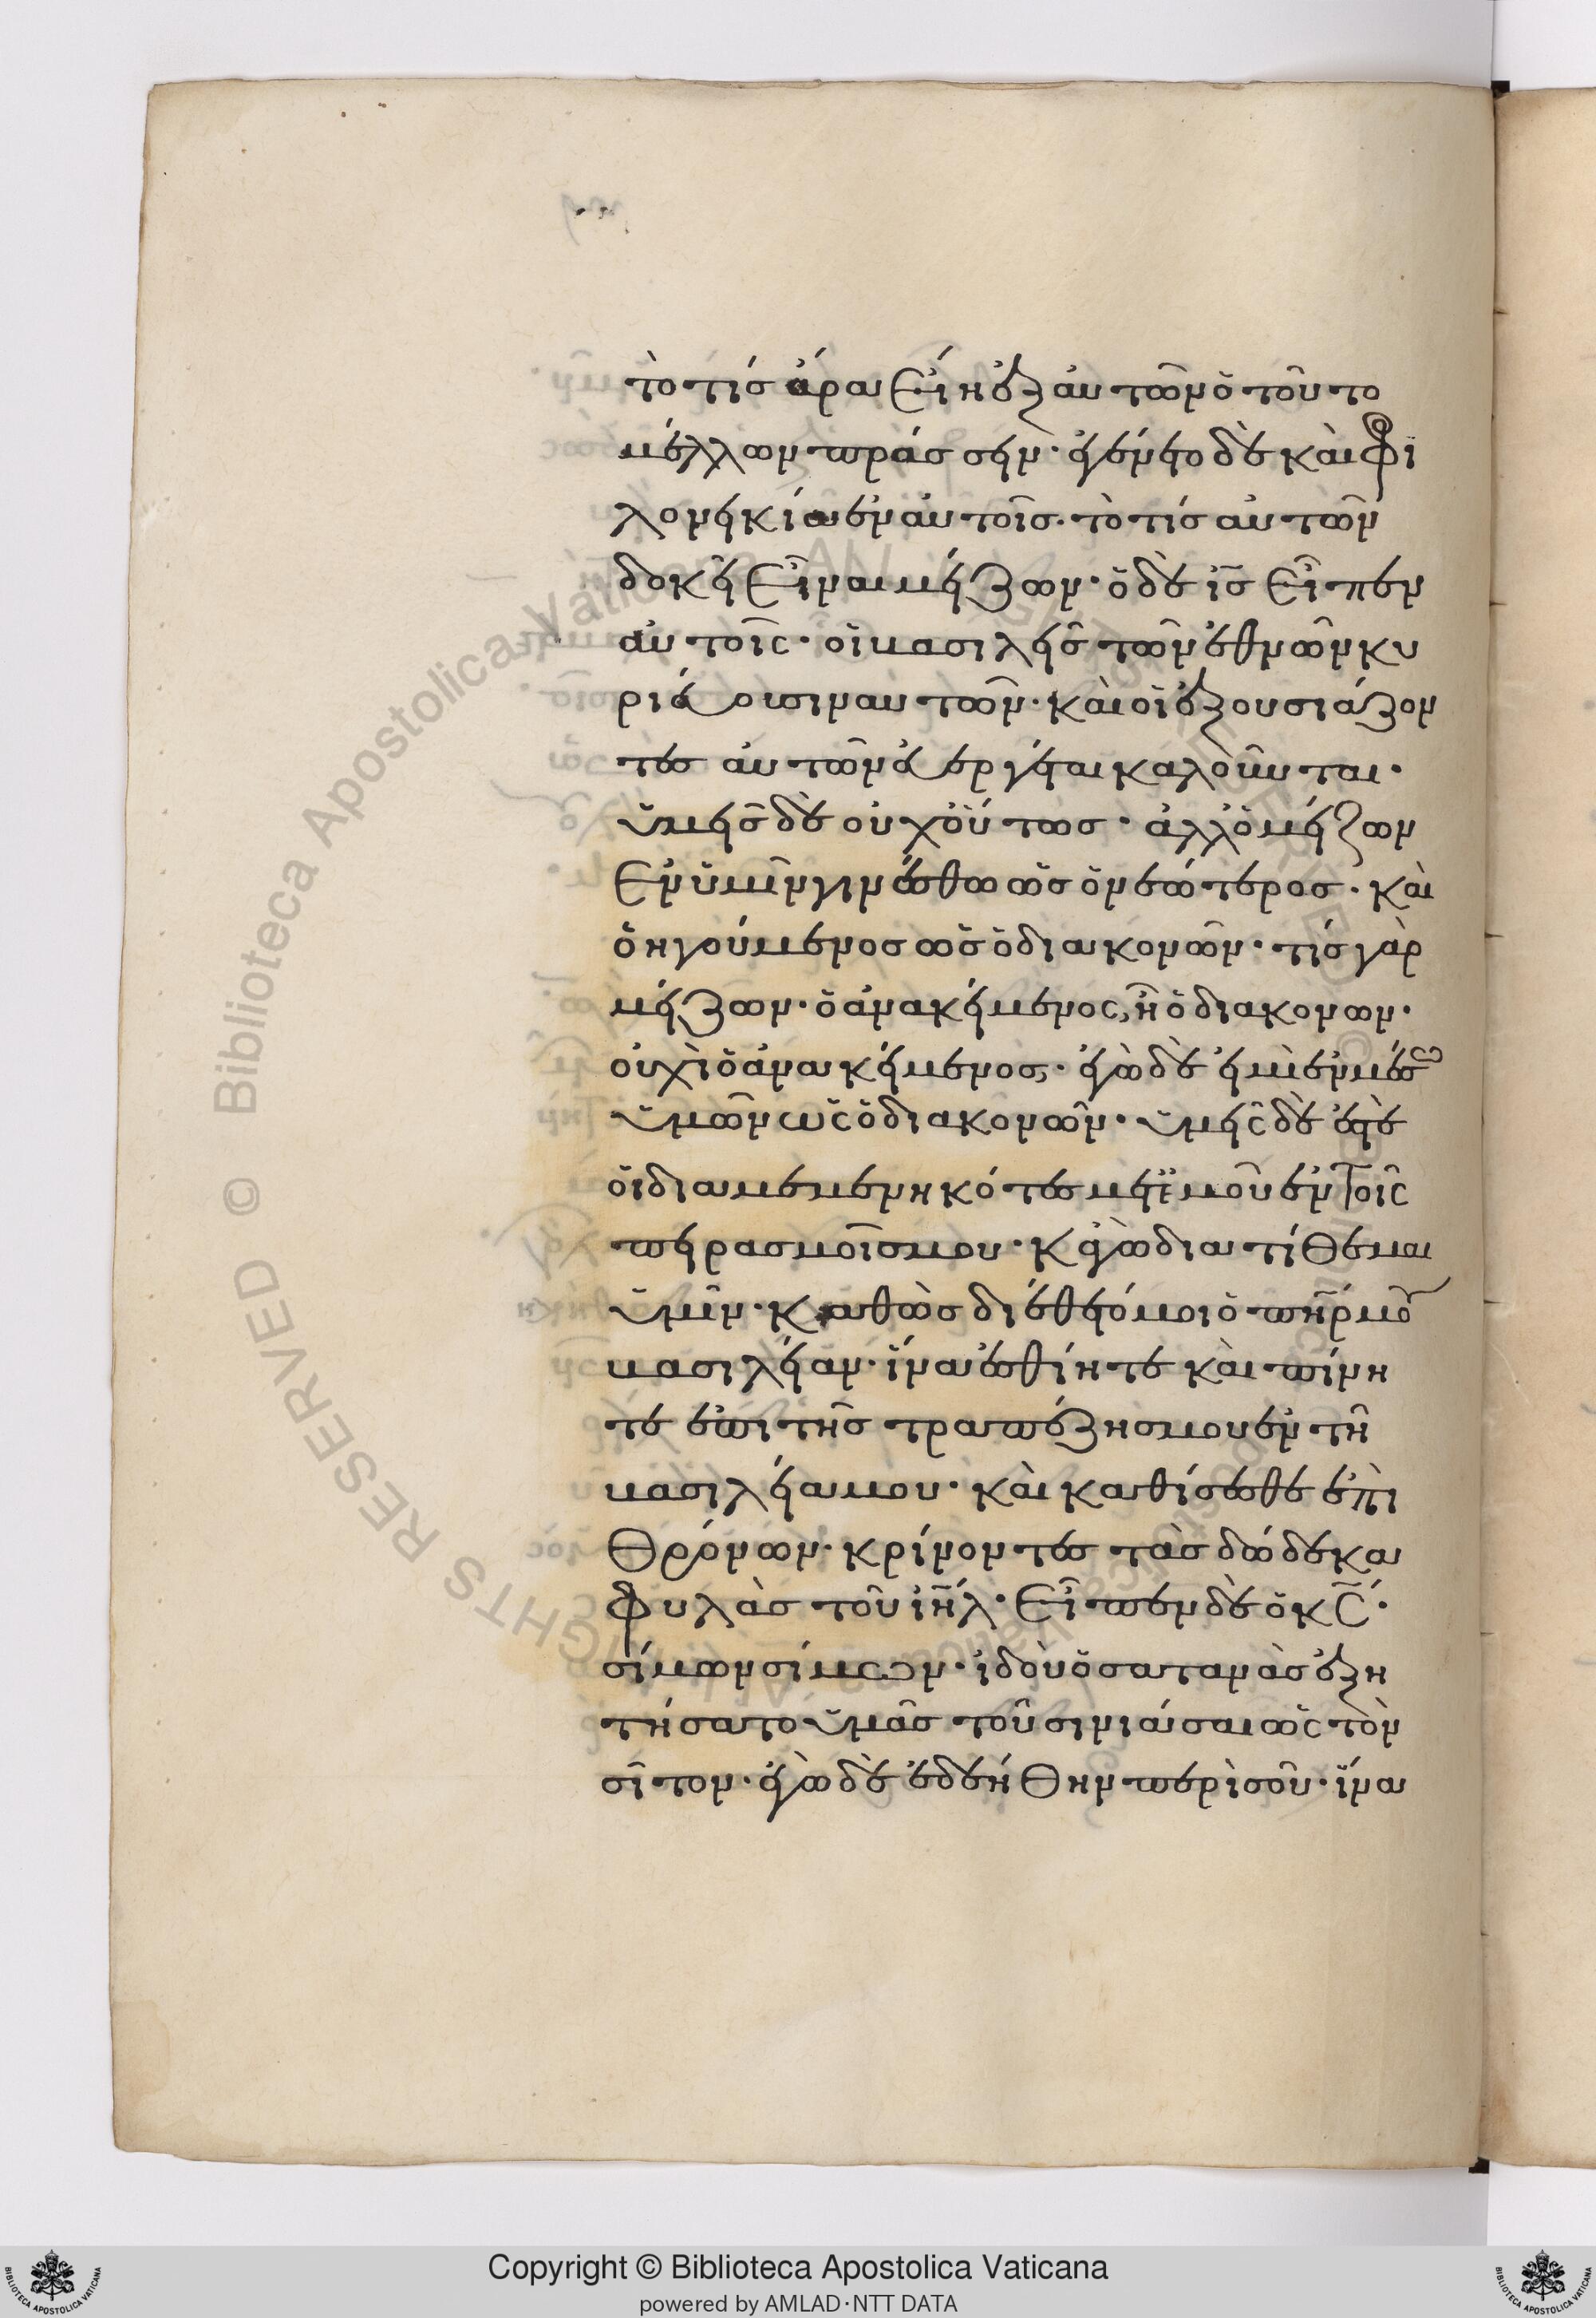 τὸ τίς ἄρα εἴη ἐξ αὐτῶν ὁ τοῦτο
μέλλων πράσσειν· ἐγένετο δὲ καὶ φι
λονεικία ἐν αὐτοῖς· τὸ τίς αὐτῶν
δοκεῖ εἶναι μείζων· ὁ δὲ ι̅ς̅ εἶπεν
αὐτοῖς· οἱ βασιλεῖς τῶν ἐθνῶν κυ
ριεύουσιν αὐτῶν· καὶ οἱ ἐξουσιάζον
τες αὐτῶν εὐεργέται καλοῦνται·
ὑμεῖς δὲ οὐχ οὕτως· ἀλλ ὁ μείζων
ἐν ὑμῖν γινέσθω ὡς ὁ νεώτερος· καὶ
ὁ ἡγούμενος ὡς ὁ διακονῶν· τίς γὰρ
μείζων· ὁ ἀνακείμενος, ἢ ὁ διακονων·
οὐχὶ ὁ ἀνακείμενος· ἐγὼ δὲ εἰμὶ ἐν μέσω
ὑμῶν ὡς ὁ διακονῶν· ὑμεῖς δὲ ἐστὲ
οἱ διαμεμενηκότες μετ ἐμοῦ ἐν τοῖς
πειρασμοῖς μου· κἀγὼ διατίθεμαι
ὑμῖν· καθὼς διέθετό μοι ὁ π̅η̅ρ̅ μου
βασιλείαν· ἵνα ἐσθίητε καὶ πίνη
τε ἐπι τῆς τραπέζης μου ἐν τῆ
βασιλεία μου· καὶ καθίσεσθε ἐπὶ
θρόνων· κρίνοντες τὰς δώδεκα
φυλὰς τοῦ ι̅η̅λ̅· εἶπεν δὲ ὁ κ̅ς̅·
σίμων σίμων· ἰδοὺ ὁ σατανὰς ἐξη
τήσατο ὑμᾶς τοῦ σινιάσαι ὡς τὸν
σῖτον· ἐγὼ δὲ ἐδεήθην περὶ σοῦ· ἵνα
Copyright © Biblioteca Apostolica Vaticana
powered by AMLAD·NTT DATA